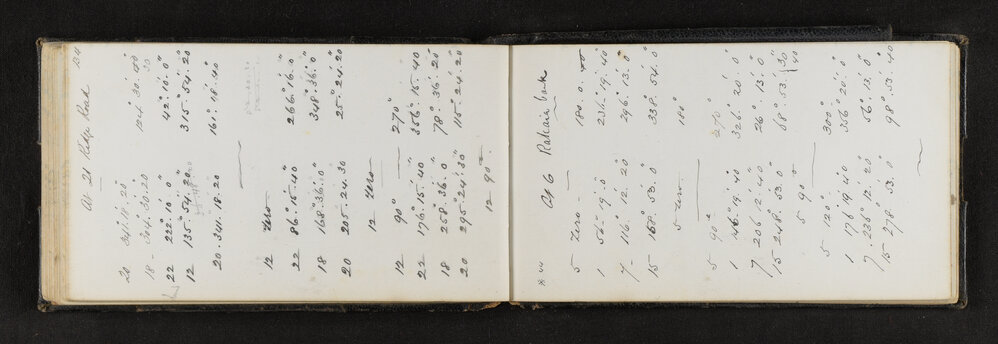 At 21 Ridge Road 134
20 341.18.20
18 - 304.30.20 124.30.40
20
22 222°.10'.0" 42°.10'.0"
12 135°.54.20 315°.54'.20"
20.341.18.20 161°.18'.40"
12 Zero
22 86°.15'.40" 266°.16.0"
18 168°.36'.0" 348°.36'.0"
20 205.24.30 25°.24'.20"
12 Zero
12 90° 270°
22 176°.15'.40 356°.15.40
18 258°.36'.0 78°.36'.20"
20 295°.24'.30" 115°.24.20
12 90°
* 44 At 6 Rakaia bank
5 Zero - 180.0.40
1 56.19.0 236.19.40
7 - 116.12.20 296°.13'.0"
15 158°.53.0 338°.54'.0
5 Zero 180°
5 90° 270°
1 146°.19'.40 326°.20'.0
7 206.12.40 26°.13'.0"
15 248°.53.0 68°.53.30
40
5 90°
5 120° 300°
1 176°.19'.40 356°.20'.0
7.236°.12'.20 56°.13'.0
15 278°.53.0 98°.53.40